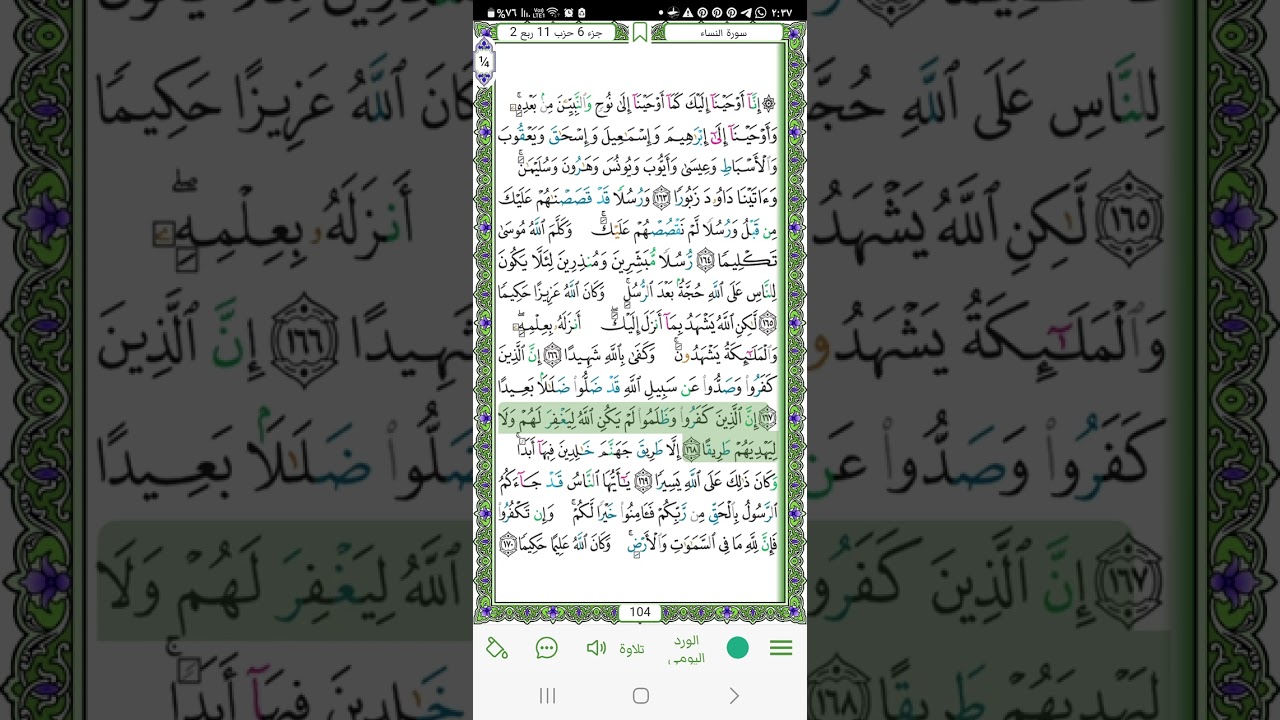 ٢:٣٧
%٧٦
سورة النساء
جزء 6 حزب 11 ربع 2
¼
۞ إِنَّآ أَوْحَيْنَآ إِلَيْكَ كَمَآ أَوْحَيْنَآ إِلَىٰ نُوحٍ وَٱلنَّبِيِّـۧنَ مِنۢ بَعْدِهِۦۚ
وَأَوْحَيْنَآ إِلَىٰٓ إِبْرَٰهِيمَ وَإِسْمَٰعِيلَ وَإِسْحَٰقَ وَيَعْقُوبَ
وَٱلْأَسْبَاطِ وَعِيسَىٰ وَأَيُّوبَ وَيُونُسَ وَهَٰرُونَ وَسُلَيْمَٰنَۚ
وَءَاتَيْنَا دَاوُۥدَ زَبُورًا ١٦٣ وَرُسُلًا قَدْ قَصَصْنَٰهُمْ عَلَيْكَ
مِن قَبْلُ وَرُسُلًا لَّمْ نَقْصُصْهُمْ عَلَيْكَۚ وَكَلَّمَ ٱللَّهُ مُوسَىٰ
تَكْلِيمًا ١٦٤ رُّسُلًا مُّبَشِّرِينَ وَمُنذِرِينَ لِئَلَّا يَكُونَ
لِلنَّاسِ عَلَى ٱللَّهِ حُجَّةٌۢ بَعْدَ ٱلرُّسُلِۚ وَكَانَ ٱللَّهُ عَزِيزًا حَكِيمًا
١٦٥ لَّٰكِنِ ٱللَّهُ يَشْهَدُ بِمَآ أَنزَلَ إِلَيْكَۖ أَنزَلَهُۥ بِعِلْمِهِۦۖ
وَٱلْمَلَٰٓئِكَةُ يَشْهَدُونَۚ وَكَفَىٰ بِٱللَّهِ شَهِيدًا ١٦٦ إِنَّ ٱلَّذِينَ
كَفَرُوا۟ وَصَدُّوا۟ عَن سَبِيلِ ٱللَّهِ قَدْ ضَلُّوا۟ ضَلَٰلًۢا بَعِيدًا
١٦٧ إِنَّ ٱلَّذِينَ كَفَرُوا۟ وَظَلَمُوا۟ لَمْ يَكُنِ ٱللَّهُ لِيَغْفِرَ لَهُمْ وَلَا
لِيَهْدِيَهُمْ طَرِيقًا ١٦٨ إِلَّا طَرِيقَ جَهَنَّمَ خَٰلِدِينَ فِيهَآ أَبَدًاۚ
وَكَانَ ذَٰلِكَ عَلَى ٱللَّهِ يَسِيرًا ١٦٩ يَٰٓأَيُّهَا ٱلنَّاسُ قَدْ جَآءَكُمُ
ٱلرَّسُولُ بِٱلْحَقِّ مِن رَّبِّكُمْ فَـَٔامِنُوا۟ خَيْرًا لَّكُمْۚ وَإِن تَكْفُرُوا۟
فَإِنَّ لِلَّهِ مَا فِى ٱلسَّمَٰوَٰتِ وَٱلْأَرْضِۚ وَكَانَ ٱللَّهُ عَلِيمًا حَكِيمًا ١٧٠
104
الورد اليومي
تلاوة